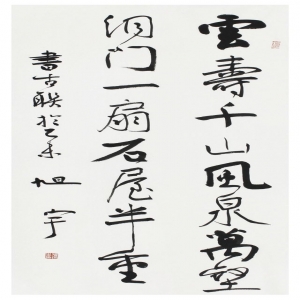 雲壽千山風泉萬壑
洞门一扇石屋半重
書古联於乙未旭宇